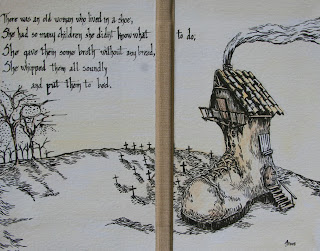 There was an old woman who lived in a shoe,
She had so many children she didnt know what to do;
She gave them some broth without any bread,
She whipped them all soundly
and put them to bed.